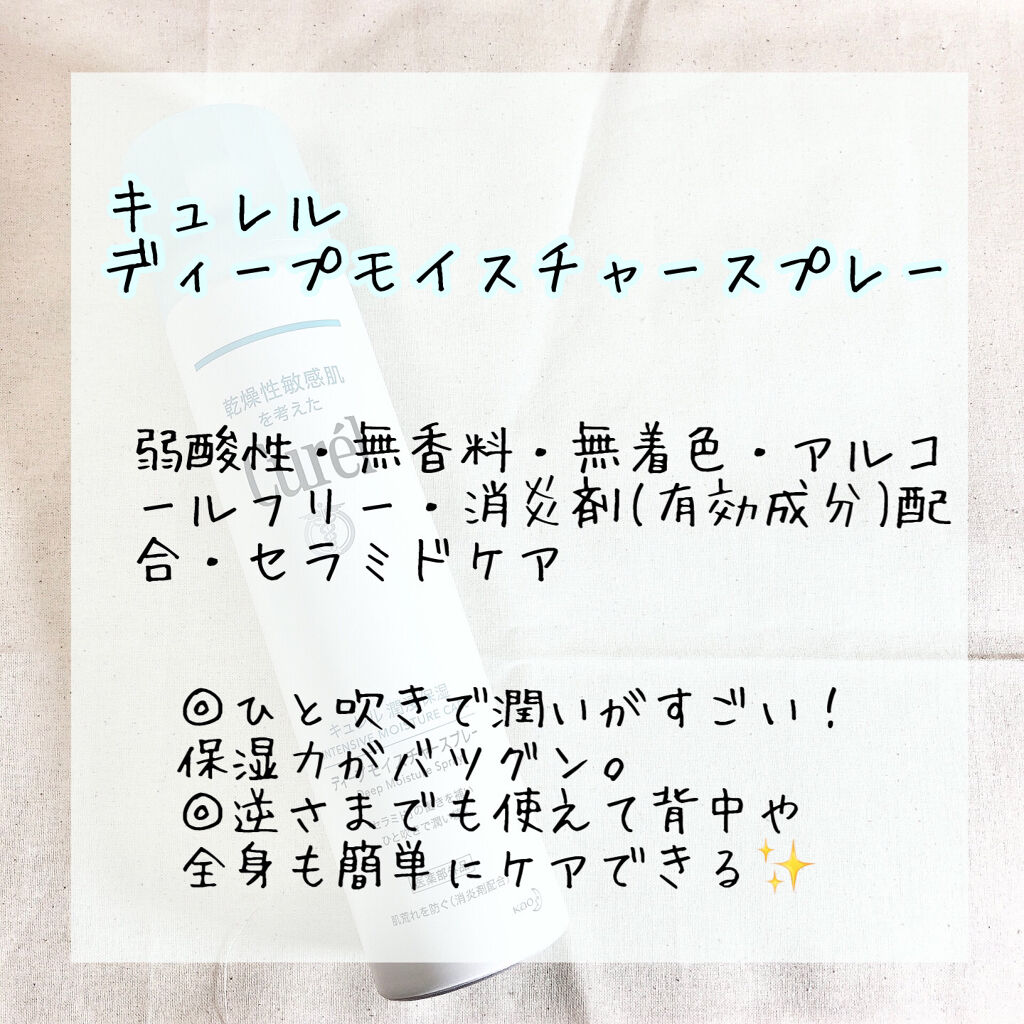 キュレル
ディープモイスチャースプレー
乾燥性敏感肌
を考えた
Curél
弱酸性・無香料・無着色・アルコ
ールフリー・消炎剤(有効成分)配
合・セラミドケア
◎ひと吹きで潤いがすごい！
保湿力がバツグン。
◎逆さまでも使えて背中や
全身も簡単にケアできる✨
キュレル 潤浸保湿
INTENSIVE MOISTURE CARE
ディープモイスチャースプレー
Deep Moisture Spray
肌荒れを防ぐ(消炎剤配合)
Kao